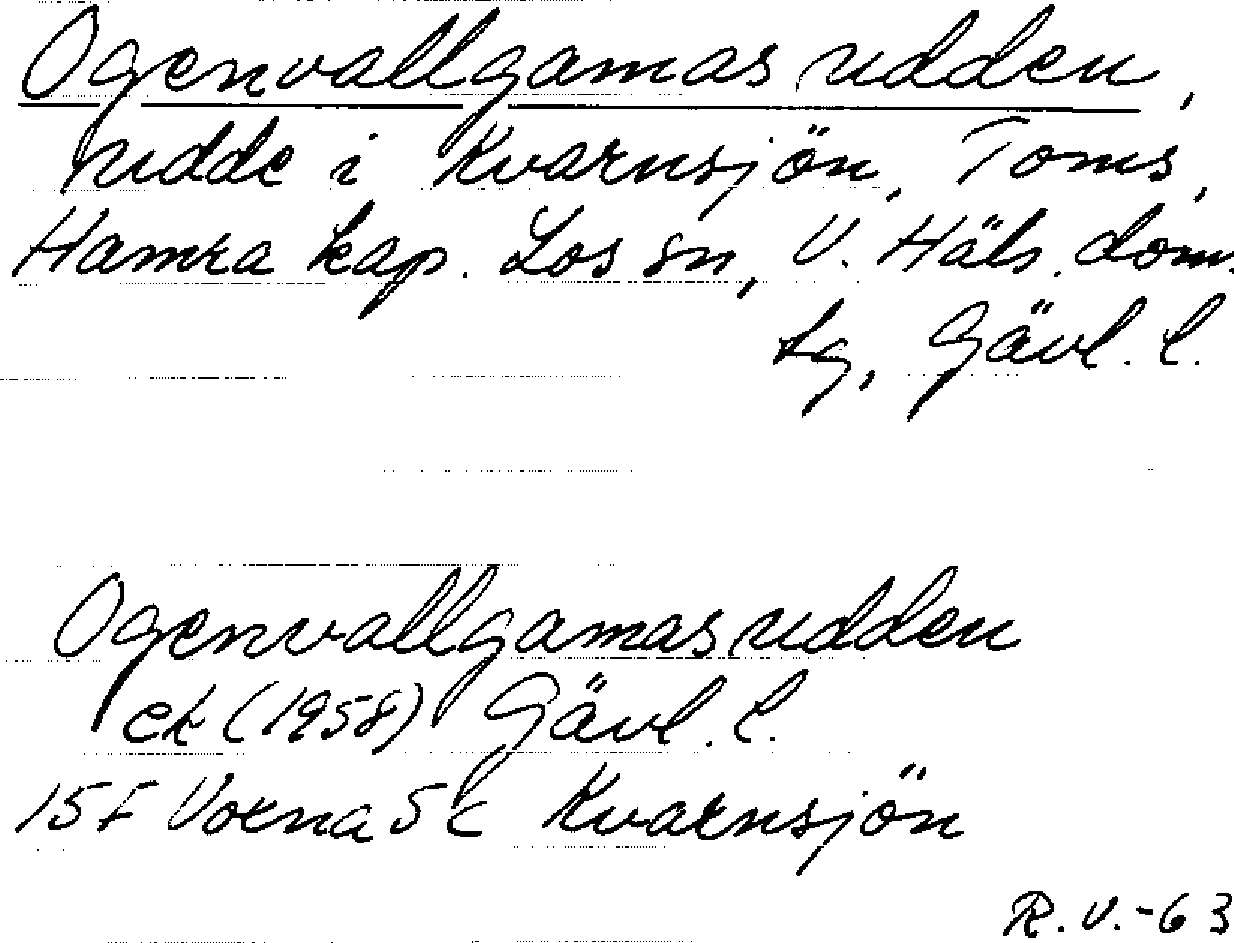 Ogenvallgamasudden,
udde i Kvarnsjön, Toms,
Hamra kap. Los sn, V. Häls. dom.
sg, Gävl. l.
Ogenvallgamasudden
ek (1958) Gävl. l.
15F Voxna 5c Kvarnsjön
R.V.-63